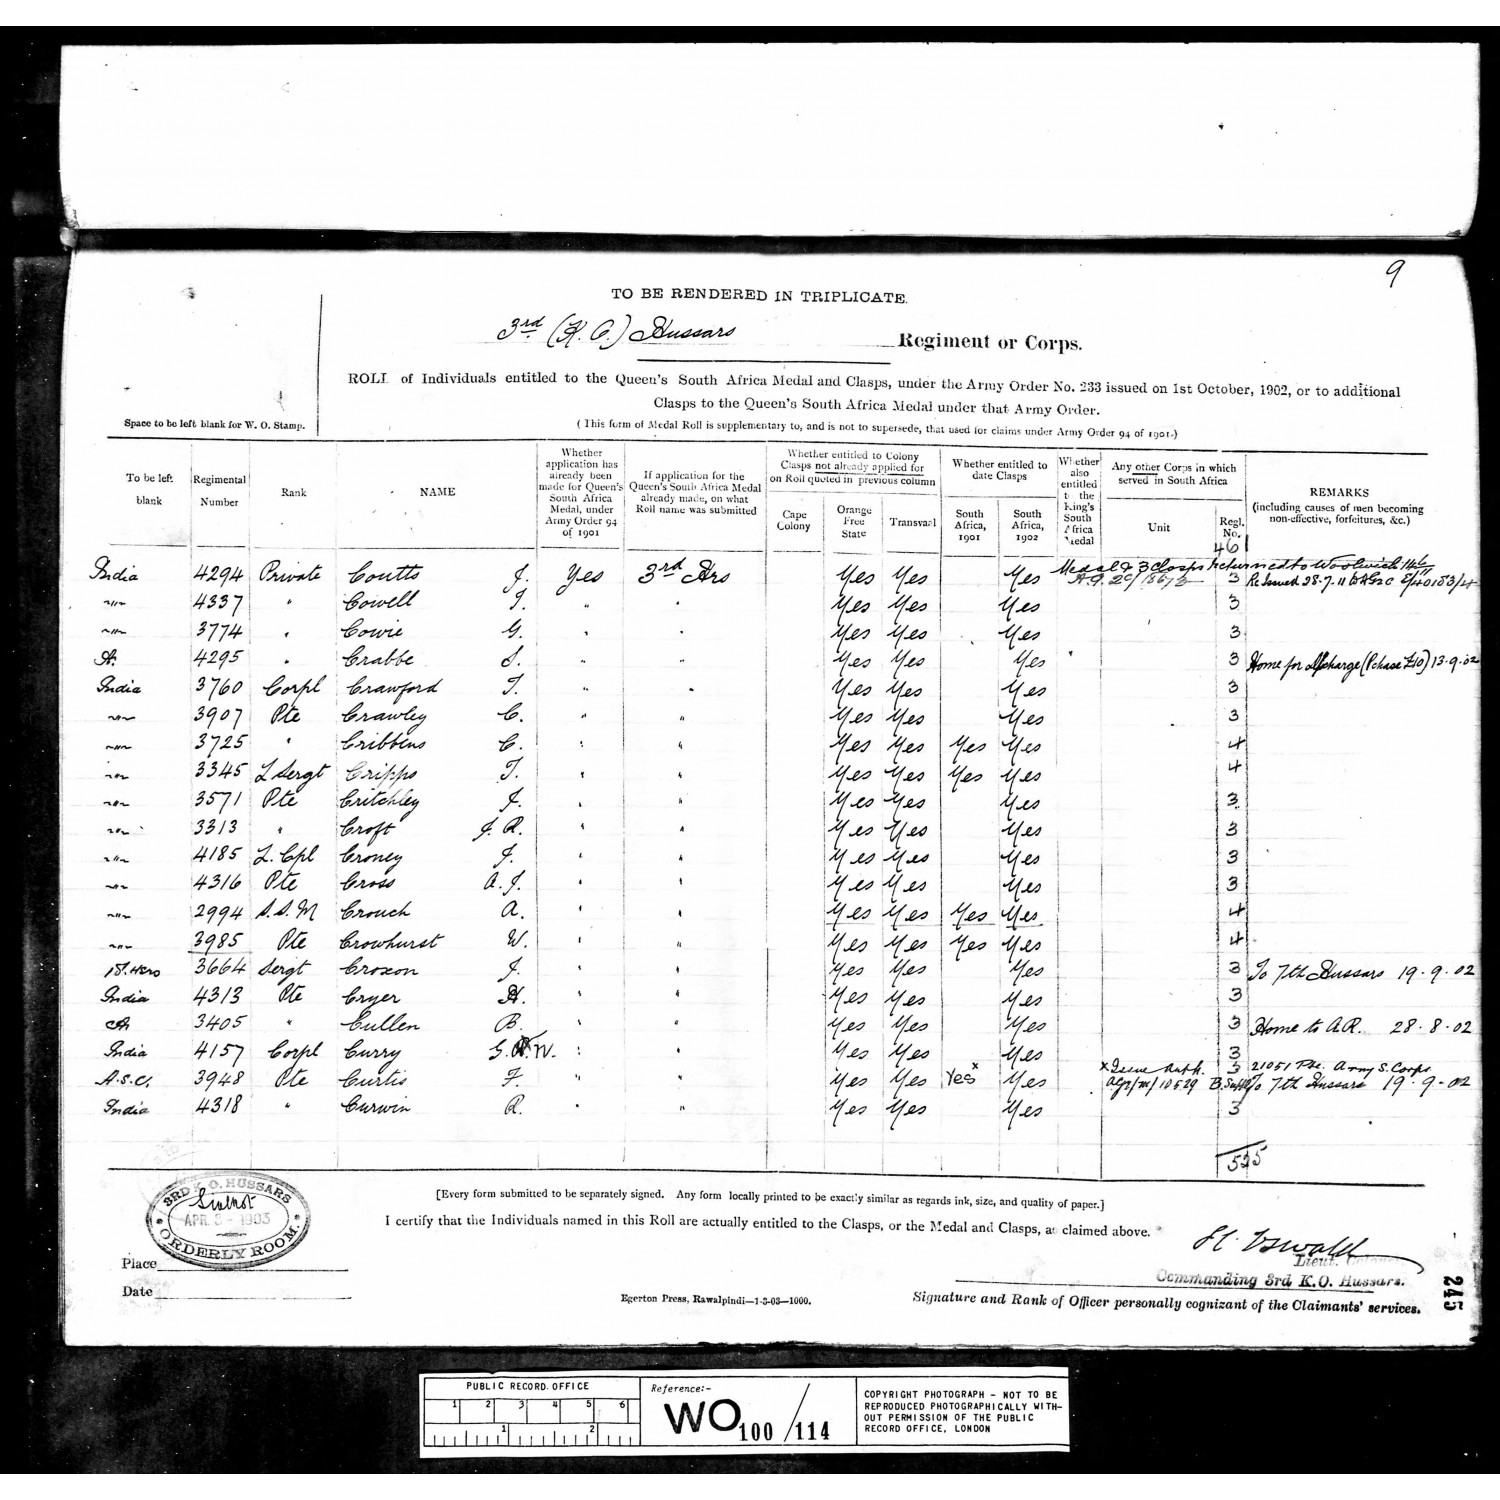 9
TO BE RENDERED IN TRIPLICATE.
3rd (K. O.) Hussars Regiment or Corps.
ROLL of Individuals entitled to the Queen's South Africa Medal and Clasps, under the Army Order No. 233 issued on 1st October, 1902, or to additional
Clasps to the Queen's South Africa Medal under that Army Order.
(This form of Medal Roll is supplementary to, and is not to supersede, that used for claims under Army Order 94 of 1901.)
Space to be left blank for W. O. Stamp.
To be left blank
Regimental Number
Rank
NAME
Whether application has already been made for Queen's South Africa Medal, under Army Order 94 of 1901
If application for the Queen's South Africa Medal already made, on what Roll name was submitted
Whether entitled to Colony Clasps not already applied for on Roll quoted in previous column
Cape Colony
Orange Free State
Transvaal
Whether entitled to date Clasps
South Africa, 1901
South Africa, 1902
Whether also entitled to the King's South Africa Medal
Any other Corps in which served in South Africa
Unit
Regl. No.
REMARKS
(including causes of men becoming non-effective, forfeitures, &c.)
461
Medal & 3 Clasps returned to Woolwich
India 4294 Private Coutts J. Yes 3rd Hrs Yes Yes Yes 3 Re Issued 28.7.11
-"- 4337 " Cowell J. " " Yes Yes Yes 3
-"- 3774 " Cowie G. " " Yes Yes Yes 3
A. 4295 " Crabbe S. " " Yes Yes Yes 3 Home for discharge (Pchase £10) 13.9.02
India 3760 Corpl Crawford T. " " Yes Yes Yes 3
-"- 3907 Pte Crawley C. " " Yes Yes Yes 3
-"- 3725 " Cribbens C. " " Yes Yes Yes Yes 4
-"- 3345 L Sergt Cripps T. " " Yes Yes Yes Yes 4
-"- 3571 Pte Critchley J. " " Yes Yes Yes 3
-"- 3313 " Croft J. R. " " Yes Yes Yes 3
-"- 4185 L. Cpl Croney J. " " Yes Yes Yes 3
-"- 4316 Pte Cross A. J. " " Yes Yes Yes 3
-"- 2994 S. S. M Crouch A. " " Yes Yes Yes Yes 4
-"- 3985 Pte Crowhurst W. " " Yes Yes Yes Yes 4
3664 Sergt Croxon J. " " Yes Yes Yes 3 To 7th Hussars 19.9.02
India 4313 Pte Cryer H. " " Yes Yes Yes 3
3405 " Cullen B. " " Yes Yes Yes 3 Home to A.R. 28.8.02
India 4157 Corpl Curry G. W. " " Yes Yes Yes 3
x Issue Auth. 3 21051 Pte. Army S. Corps
A.S.C. 3948 Pte Curtis F. " " Yes Yes Yes x Yes To 7th Hussars 19-9-02
India 4318 " Curwin R. " " Yes Yes Yes 3
525
[Every form submitted to be separately signed. Any form locally printed to be exactly similar as regards ink, size, and quality of paper.]
I certify that the Individuals named in this Roll are actually entitled to the Clasps, or the Medal and Clasps, as claimed above.
3RD K. O. HUSSARS
Sialkot
APR 3 - 1903
ORDERLY ROOM.
Place
Date
Lieut. Colonel
Commanding 3rd K.O. Hussars.
Signature and Rank of Officer personally cognizant of the Claimants' services.
Egerton Press, Rawalpindi—1-3-03—1000.
245
PUBLIC RECORD OFFICE
1 2 3 4 5 6
1 2
Reference:-
WO 100 / 114
COPYRIGHT PHOTOGRAPH - NOT TO BE
REPRODUCED PHOTOGRAPHICALLY WITH-
OUT PERMISSION OF THE PUBLIC
RECORD OFFICE, LONDON